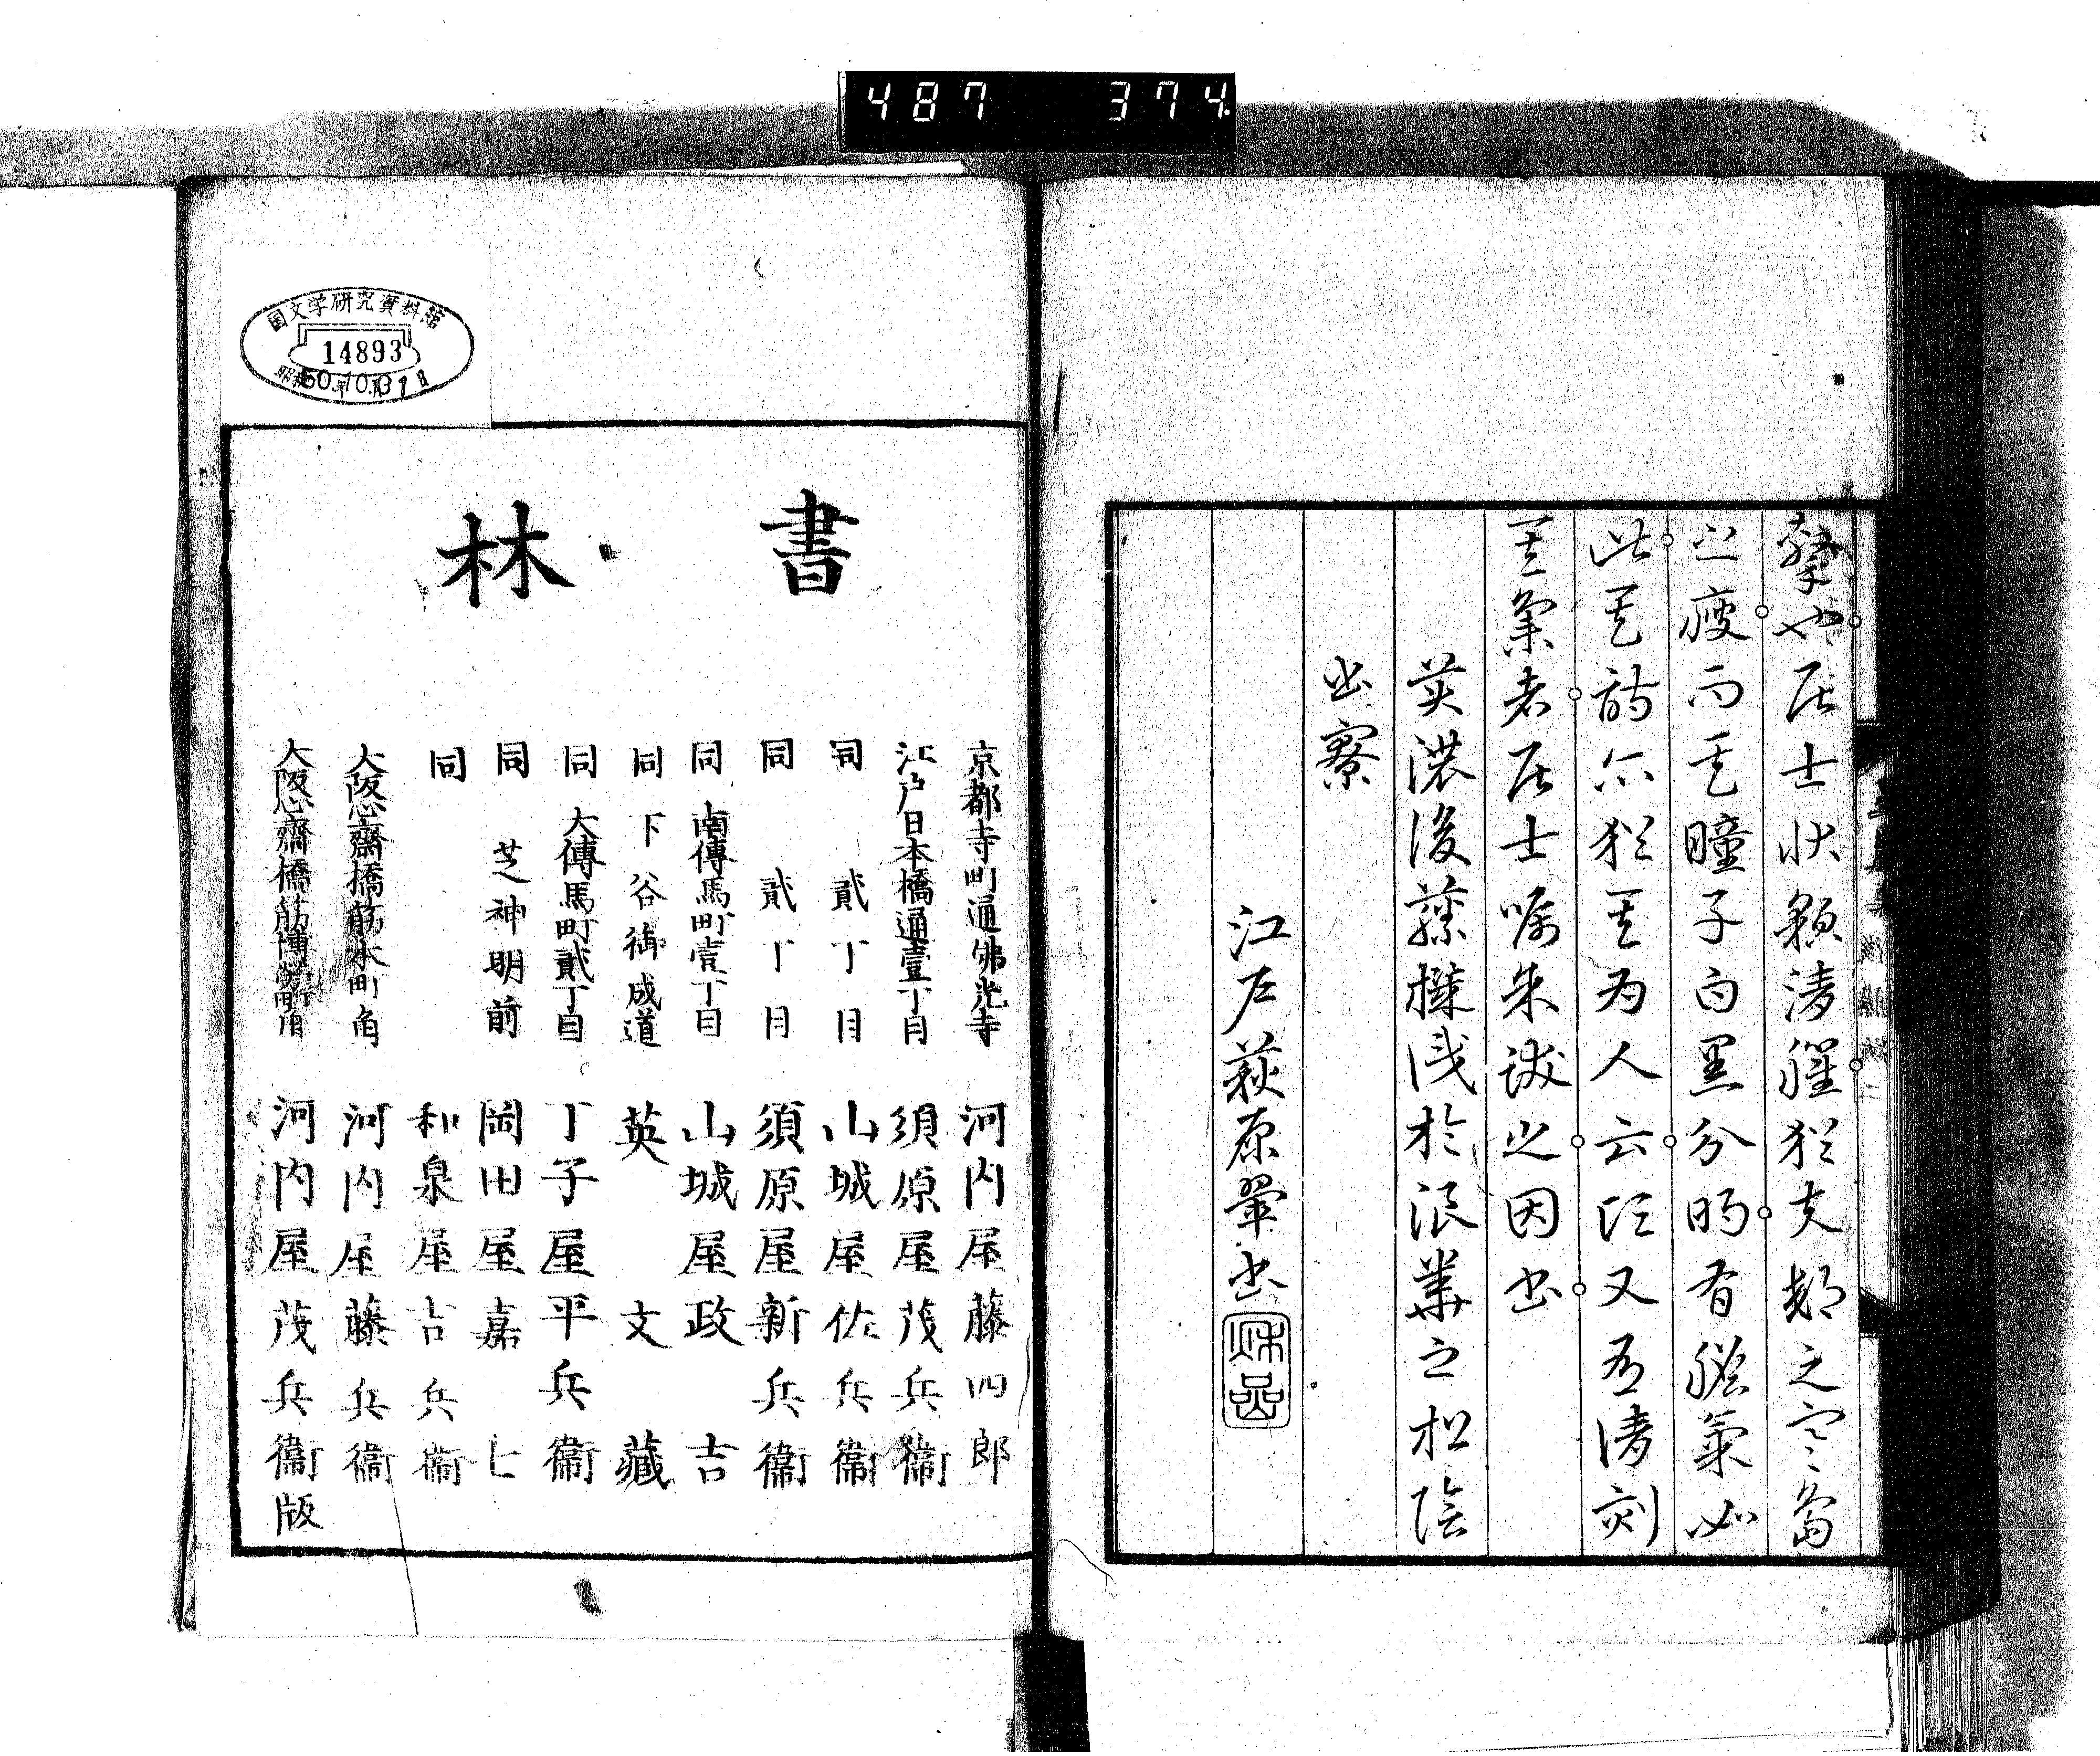 487 374
居士状貌清癯犹夫郊之寒島
之瘦而其瞳子白黑分明有膽氣必
此其詩亦犹其为人云頃又有請刻
其集者居士嘱朱跋之因书
美濃後藤機識於浪華之松陰
书寮
江戶萩原翬书
国文学研究資料館
14893
昭和50年10月31日
書林
京都寺町通佛光寺 河内屋藤四郎
江戸日本橋通壹丁目 須原屋茂兵衞
同 貳丁目 山城屋佐兵衞
同 貳丁目 須原屋新兵衞
同 南傳馬町壹丁目 山城屋政吉
同 下谷御成道 英文藏
同 大傳馬町貳丁目 丁子屋平兵衞
同 芝神明前 岡田屋嘉七
同 和泉屋吉兵衞
大阪心齋橋筋本町角 河内屋藤兵衞
大阪心齋橋筋博勞町角 河内屋茂兵衞版